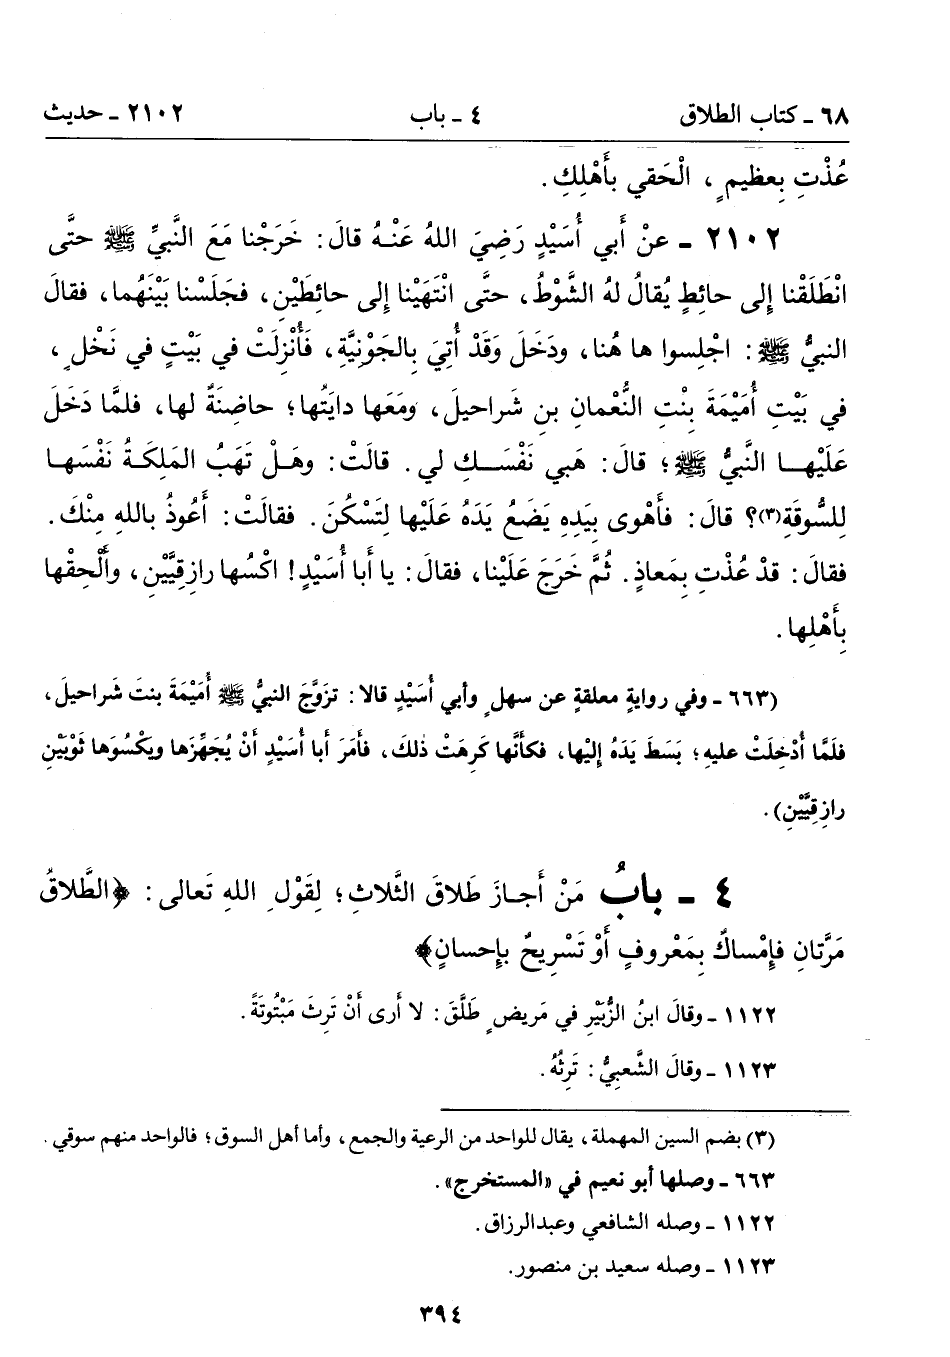 ٦٨ ـ كتاب الطلاق ٤ ـ باب ٢١٠٢ ـ حديث
عُذْتِ بِعظيمٍ ، الْحَقي بأَهْلِكِ .
٢١٠٢ ـ عنْ أَبي أُسَيْدٍ رَضِيَ اللهُ عَنْهُ قالَ : خَرَجْنا مَعَ النَّبيِّ ﷺ حتَّى
انْطَلَقْنا إِلى حائطٍ يُقالُ لهُ الشَّوْطُ ، حتَّى انْتَهَيْنا إِلى حائِطَيْنِ ، فجَلَسْنا بَيْنَهُما ، فقالَ
النبيُّ ﷺ : اجْلِسوا ها هُنا ، ودَخَلَ وَقَدْ أُتِيَ بالجَوْنِيَّةِ ، فَأُنْزِلَتْ في بَيْتٍ في نَخْلٍ ،
في بَيْتِ أُمَيْمَةَ بِنْتِ النُّعْمانِ بنِ شَراحيلَ ، ومَعَها دايَتُها ؛ حاضِنَةٌ لها ، فلمَّا دَخَلَ
عَلَيْها النَّبيُّ ﷺ ؛ قالَ : هَبي نَفْسَكِ لي . قالَتْ : وهَلْ تَهَبُ المَلِكَةُ نَفْسَها
لِلسُّوقَةِ(٣)؟ قالَ : فأَهْوى بِيَدِهِ يَضَعُ يَدَهُ عَلَيْها لِتَسْكُنَ . فقالَتْ : أَعُوذُ باللهِ مِنْكَ .
فقالَ : قدْ عُذْتِ بِمَعاذٍ . ثُمَّ خَرَجَ عَلَيْنا ، فقالَ : يا أَبا أُسَيْدٍ! اكْسُها رازِقِيَّيْنِ ، وأَلْحِقْها
بِأَهْلِها .
(٦٦٣ ـ وفي روايةٍ معلقةٍ عن سهلٍ وأَبي أُسَيْدٍ قالا : تزَوَّجَ النبيُّ ﷺ أُمَيْمَةَ بنتَ شَراحيلَ ،
فلَمَّا أُدْخِلَتْ عليهِ ؛ بَسَطَ يَدَهُ إِليْها ، فكأَنَّها كَرِهَتْ ذٰلكَ ، فأَمَرَ أَبا أُسَيْدٍ أَنْ يُجَهِّزَها ويَكْسُوَها ثَوْبَيْنِ
رازِقِيَّيْنِ) .
٤ ـ بابُ مَنْ أَجازَ طَلاقَ الثَّلاثِ ؛ لِقَوْلِ اللهِ تَعالى : ﴿الطَّلاقُ
مَرَّتانِ فإِمْساكٌ بِمَعْروفٍ أَوْ تَسْرِيحٌ بإِحسانٍ﴾
١١٢٢ ـ وقالَ ابنُ الزُّبَيْرِ في مَريضٍ طَلَّقَ : لا أَرى أَنْ تَرِثَ مَبْتُوتَةً .
١١٢٣ ـ وقالَ الشَّعبيُّ : تَرِثُهُ .
(٣) بضم السين المهملة ، يقال للواحد من الرعية والجمع ، وأما أهل السوق ؛ فالواحد منهم سوقي .
٦٦٣ ـ وصلها أبو نعيم في «المستخرج» .
١١٢٢ ـ وصله الشافعي وعبدالرزاق .
١١٢٣ ـ وصله سعيد بن منصور .
٣٩٤